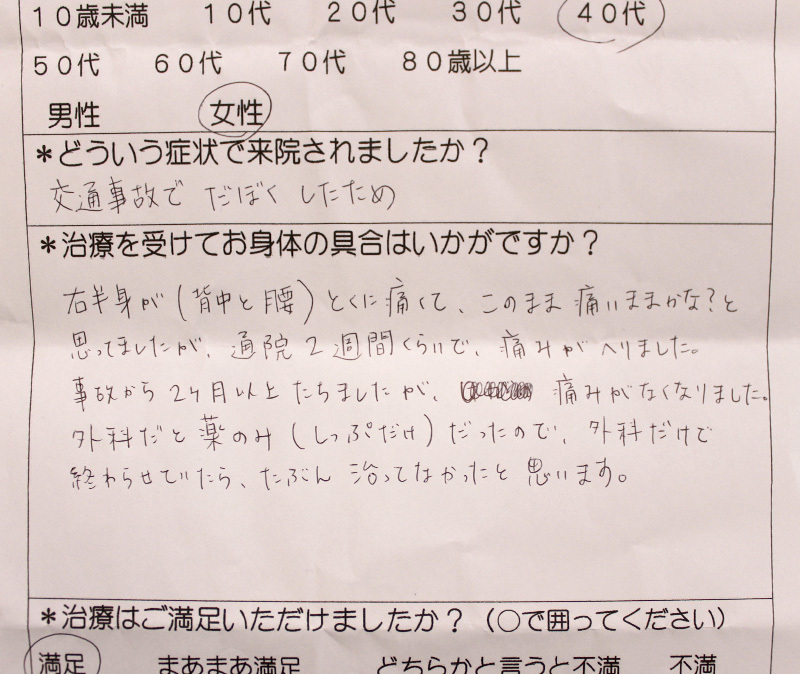 10歳未満 10代 20代 30代 40代
50代 60代 70代 80歳以上
男性 女性
＊どういう症状で来院されましたか？
交通事故で だぼく したため
＊治療を受けてお身体の具合はいかがですか？
右半身が（背中と腰）とくに痛くて、このまま痛いままかな？と
思ってましたが、通院2週間くらいで、痛みがへりました。
事故から2ヶ月以上たちましたが、痛みがなくなりました。
外科だと薬のみ（しっぷだけ）だったので、外科だけで
終わらせていたら、たぶん 治ってなかったと思います。
＊治療はご満足いただけましたか？（○で囲ってください）
満足 まあまあ満足 どちらかと言うと不満 不満